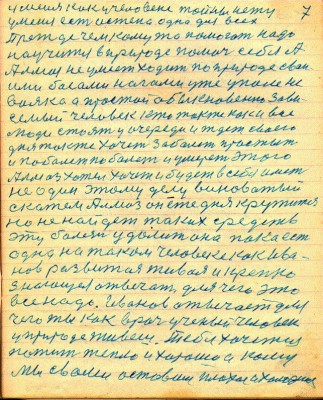 7
у меня как у человека тайны нету
у меня есть истина одна для всех
Прежде чем кому то помогать надо
научится в природе помоч себе А
Алмаз не умеет ходит по природе свои
ми босами ногами уже упал не
вояка а простой обыкновенно зави
семый человек кто так же как и все
люди стоят у очереди и ждет своего
дня тоже хочет заболет простыть
и поболет поболет и умереть этого
Алмаз хотел хочет и будет в себя иметь
не один этому делу виноватый
скажем Алмаз он сегодня крутится
но не найдет таких средств
эту болезнь удалит она пока есть
одна на таком человеке как Ива
нов развитая живая и крепко
знающая отвечать для чего это
все надо. Иванов отвечает для
чего ты как врач ученый человек
у природе живеш. Тебе хочется
пожит тепло и хорошо а кому
Мы с вами оставим плохое и холодное